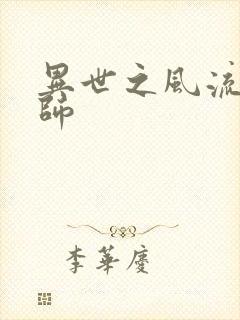 異世之風流
師
李華慶